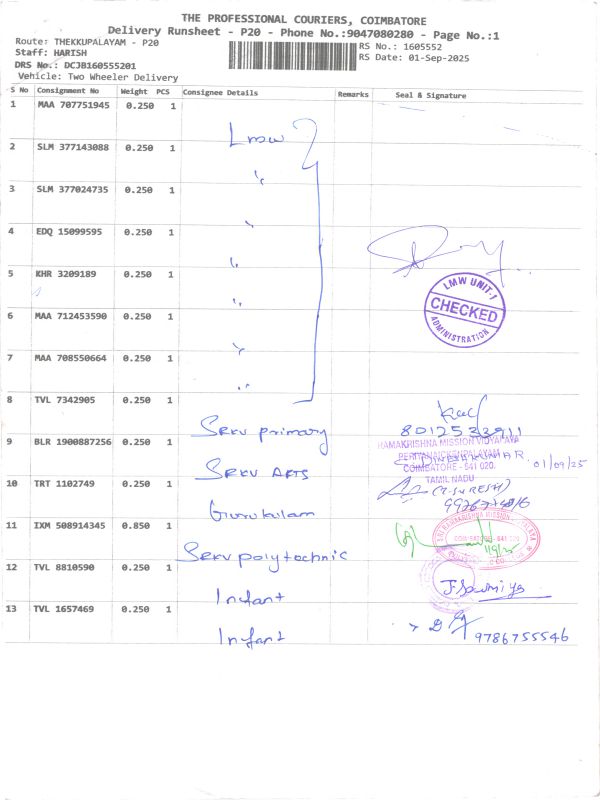 THE PROFESSIONAL COURIERS, COIMBATORE
Delivery Runsheet - P20 - Phone No.:9047080280 - Page No.:1
Route: THEKKUPALAYAM - P20
Staff: HARISH
DRS No.: DCJB160555201
Vehicle: Two Wheeler Delivery
RS No.: 1605552
RS Date: 01-Sep-2025
S No Consignment No Weight PCS Consignee Details Remarks Seal & Signature
1 MAA 707751945 0.250 1
Lmw
2 SLM 377143088 0.250 1
"
3 SLM 377024735 0.250 1
"
4 EDQ 15099595 0.250 1
"
5 KHR 3209189 0.250 1
"
6 MAA 712453590 0.250 1
"
7 MAA 708550664 0.250 1
"
LMW UNIT-1
CHECKED
ADMINISTRATION
8 TVL 7342905 0.250 1
SRKV primary
8012533911
9 BLR 1900887256 0.250 1
SRKV ARTS
RAMAKRISHNA MISSION VIDYALAYA
PERIYANAICKENPALAYAM
COIMBATORE - 641 020.
TAMIL NADU
DINESHKUMAR
01/09/25
10 TRT 1102749 0.250 1
Gurukulam
(T.SURESH)
11 IXM 508914345 0.850 1
SRKV polytechnic
1/9/25
12 TVL 8810590 0.250 1
Infant
J. Sowmiya
13 TVL 1657469 0.250 1
Infant
9786755546